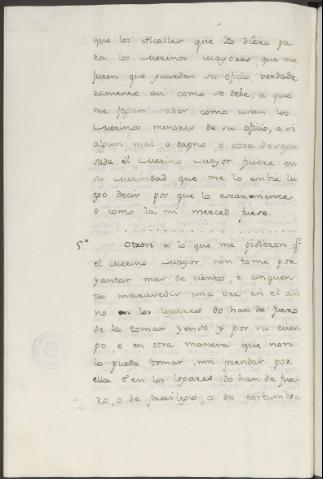 que los Alcalles que Yo diere pa
ra los Merinos mayores, que me
juren que guarden su oficio verdade
ramente asi como se debe, e que
me fagan saber como usan los
Merinos menores de su oficio, e si
algun mal, o dapno, o cosa desagui
sada el Merino Mayor ficiere en
su Merindad que me la embie lu
ego decir por que lo escarmiente
o como la mi merced fuere.
5.º Otrosi a lo que me pidieron q.e
el Merino Mayor non tome por
yantar mas de ciento, e cinquen
ta maravedis una vez en el an
no en los logares do han de fuero
de la tomar yendo y por su cuer
po, e en otra manera que non
la pueda tomar, nin prendar por
ella. E en los logares do han de fue
ro, o de previlegio, o de costumbre